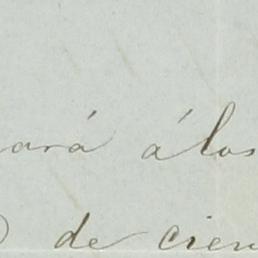 ará á los
de cien